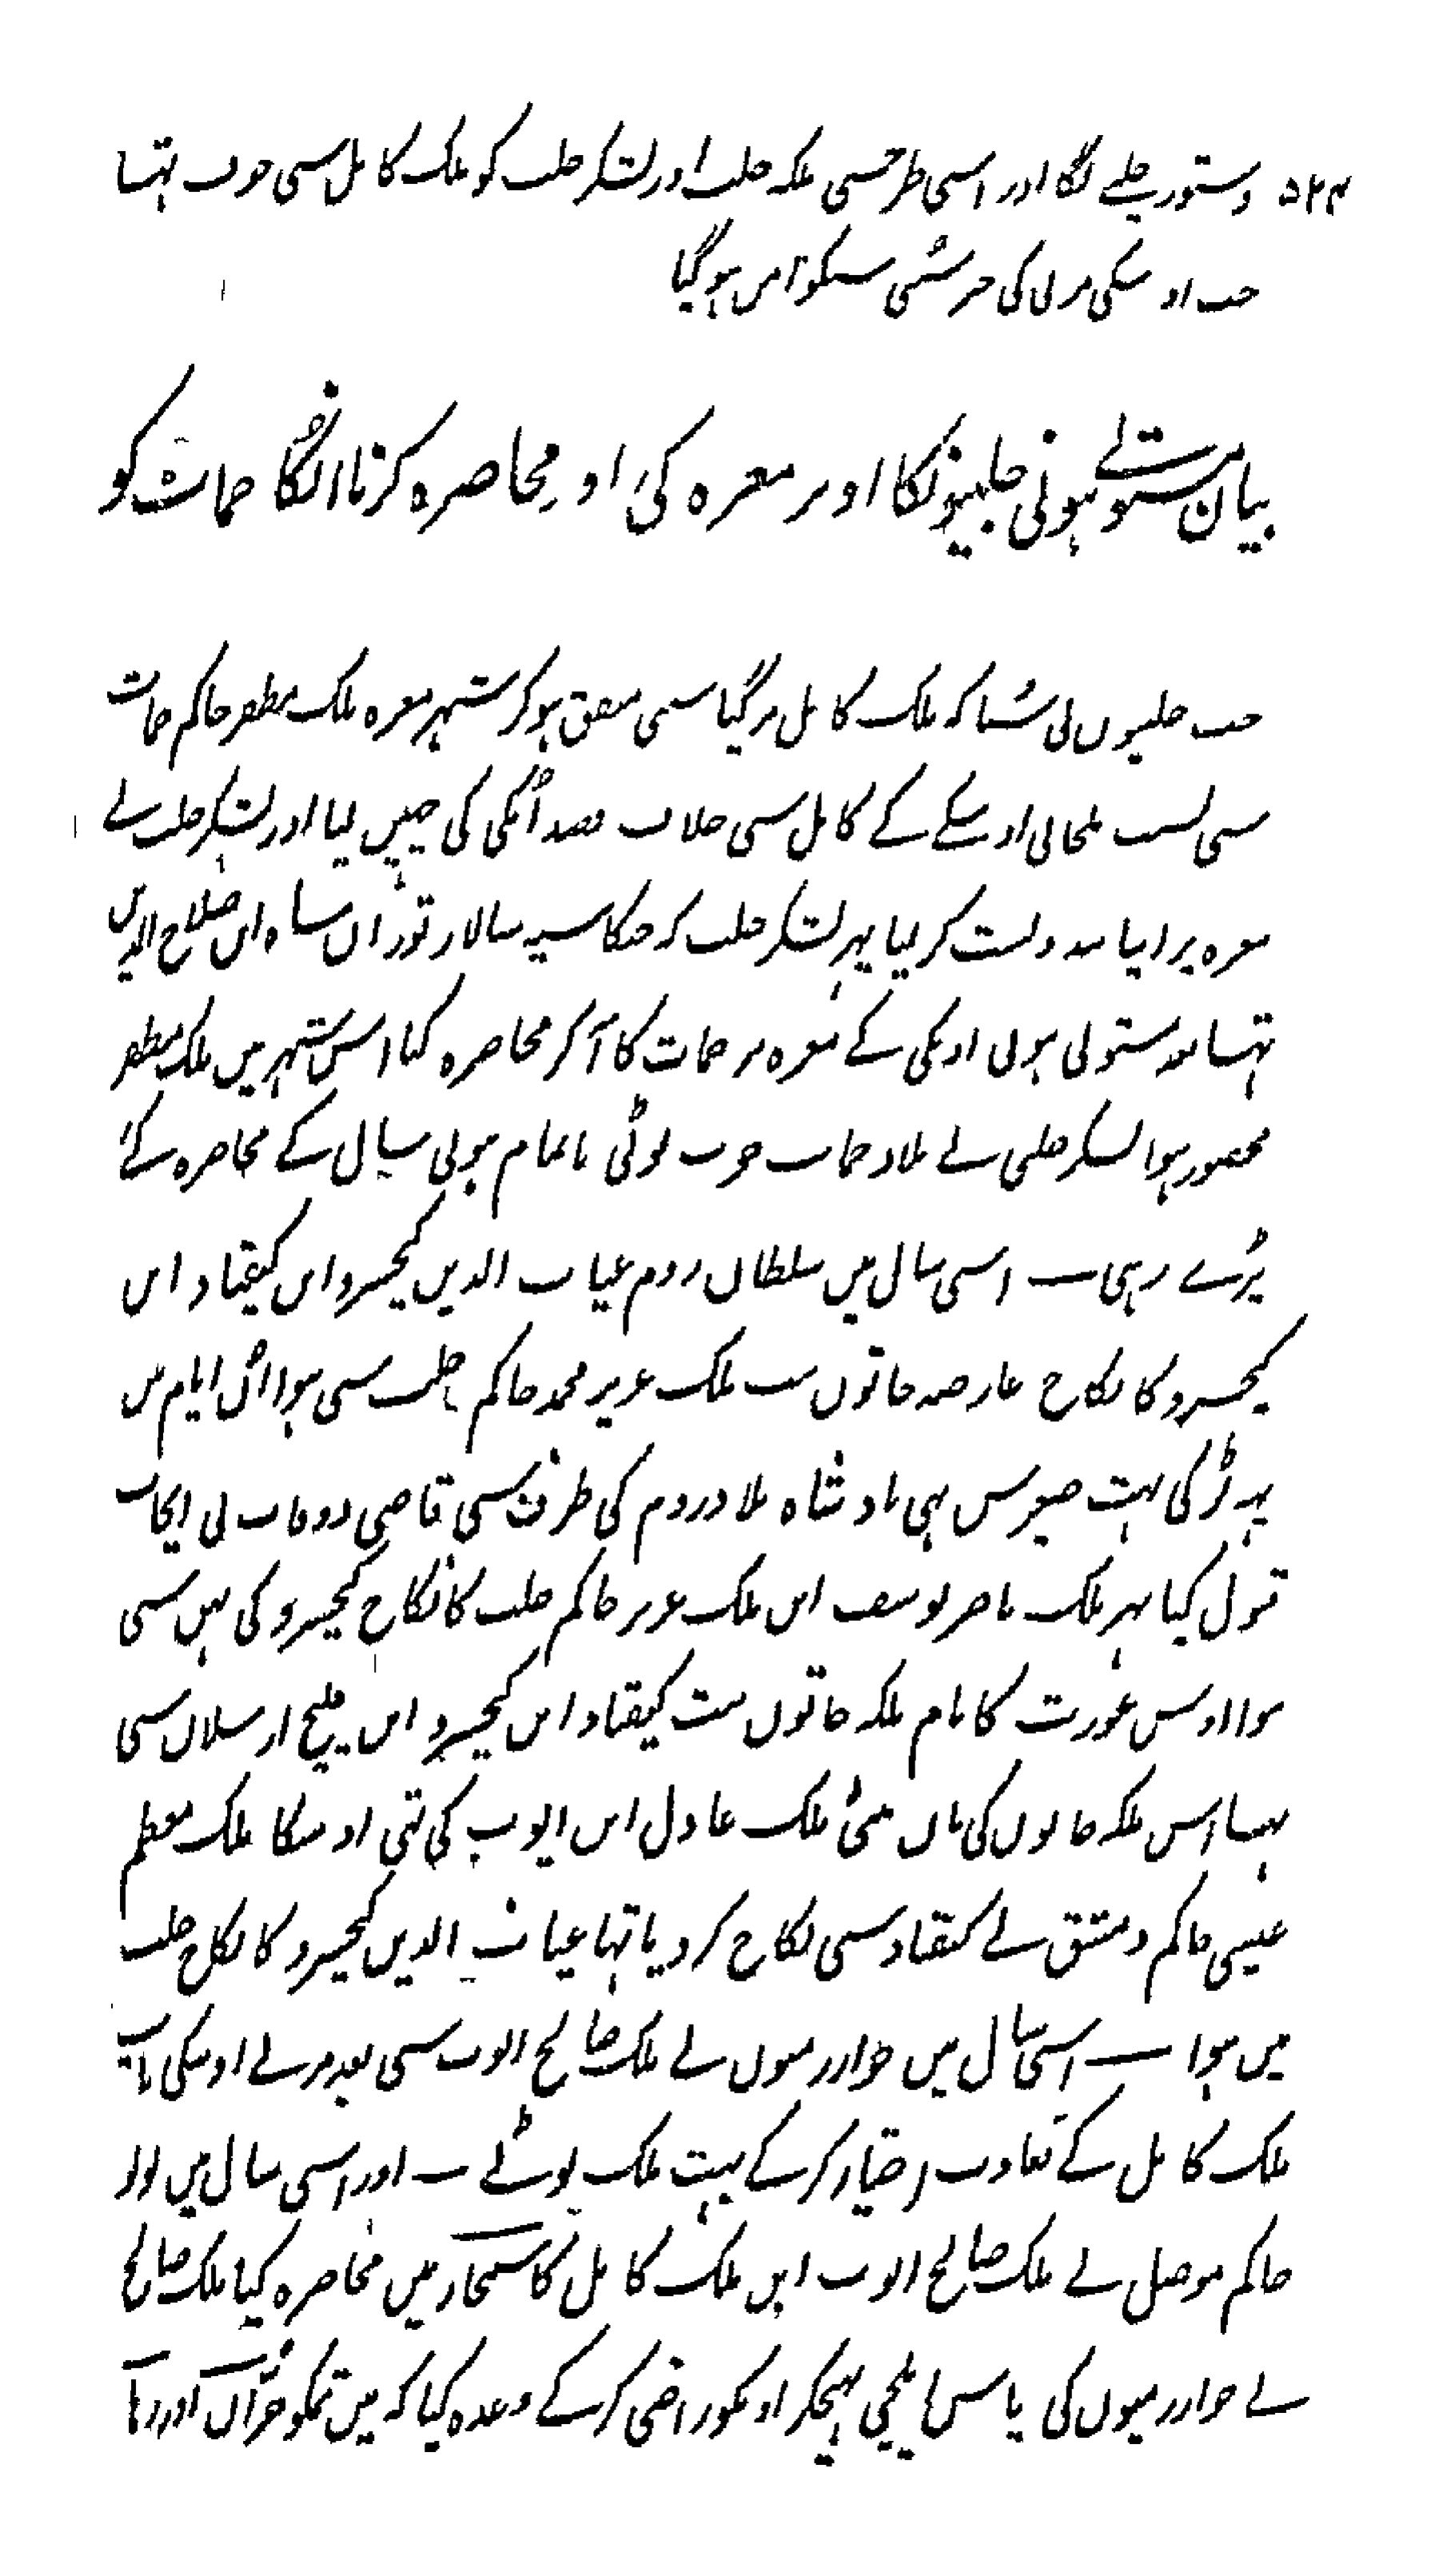 ۵۲۴ دستور چلنے لگا اور اسی طرحسی ملکہ حلب اور لشکر حلب کو ملک کامل سی خوف تہا
جب اوسکی مرنی کی خبر سُنی سبکو امن ہو گیا
بیان مستولے ہونی حلبیونکا اوپر معرہ کیٔ اور محاصرہ کرنا انکا حمات کو
جب حلبیوں نی سُنا کہ ملک کامل مر گیا سبہی متفق ہو کر شہر معرہ ملک مظفر حاکم حمات
سی بسبب ملجانی اوسکے کے کامل سی خلاف قصد اُنکی کی چہین لیا اور لشکر حلب نے
معرہ پر اپنا بندوبست کر لیا پہر لشکر حلب کہ جسکا سپہ سالار توران شاہ ابن صلاح الدین
تہا بعد مستولی ہونی اونکی کے معرہ پر حمات کا آ کر محاصرہ کیا اس شہر میں ملک مظفر
محصور ہوا لشکر حلبی نے بلاد حمات خوب لوٹی تا تمام ہونی سال کے محاصرہ کۓ
پڑے رہی ـــ اسی سال میں سلطان روم غیاث الدین کیخسرو ابن کیقباد ابن
کیخسرو کا نکاح خاتون بنت ملک عزیز محمد حاکم حلب سی ہوا اُن ایام میں
یہہ لڑکی بہت صغیرسن تہی بادشاہ بلاد روم کی طرف سی قاضی دوقات نی ایجاب
قبول کیا پہر ملک ناصر یوسف ابن ملک عزیز حاکم حلب کا نکاح کیخسرو کی بہن سی
ہوا اوس عورت کا نام ملکہ خاتون بنت کیقباد ابن کیخسرو ابن قلیج ارسلان سی
تہا اس ملکہ خاتون کی ماں بیٹی ملک عادل ابن ایوب کی تہی اوسکا ملک معظم
عیسی حاکم دمشق نے کیقباد سی نکاح کر دیا تہا غیاث الدین کیخسرو کا نکاح حلب
میں ہوا ـــ اسی سال میں خوارزمیوں نے ملک صالح ایوب سی بعد مرنے اوسکی باپ
ملک کامل کے بغاوت اختیار کر کے بہت ملک لوٹے ـــ اور اسی سال میں لولو
حاکم موصل نے ملک صالح ایوب ابن ملک کامل کا سنجار میں محاصرہ کیا ملک صالح
نے خوارزمیوں کی پاس ایلچی بہیجکر اونکو راضی کر کے وعدہ کیا کہ میں تمکو حرّان اور رہا